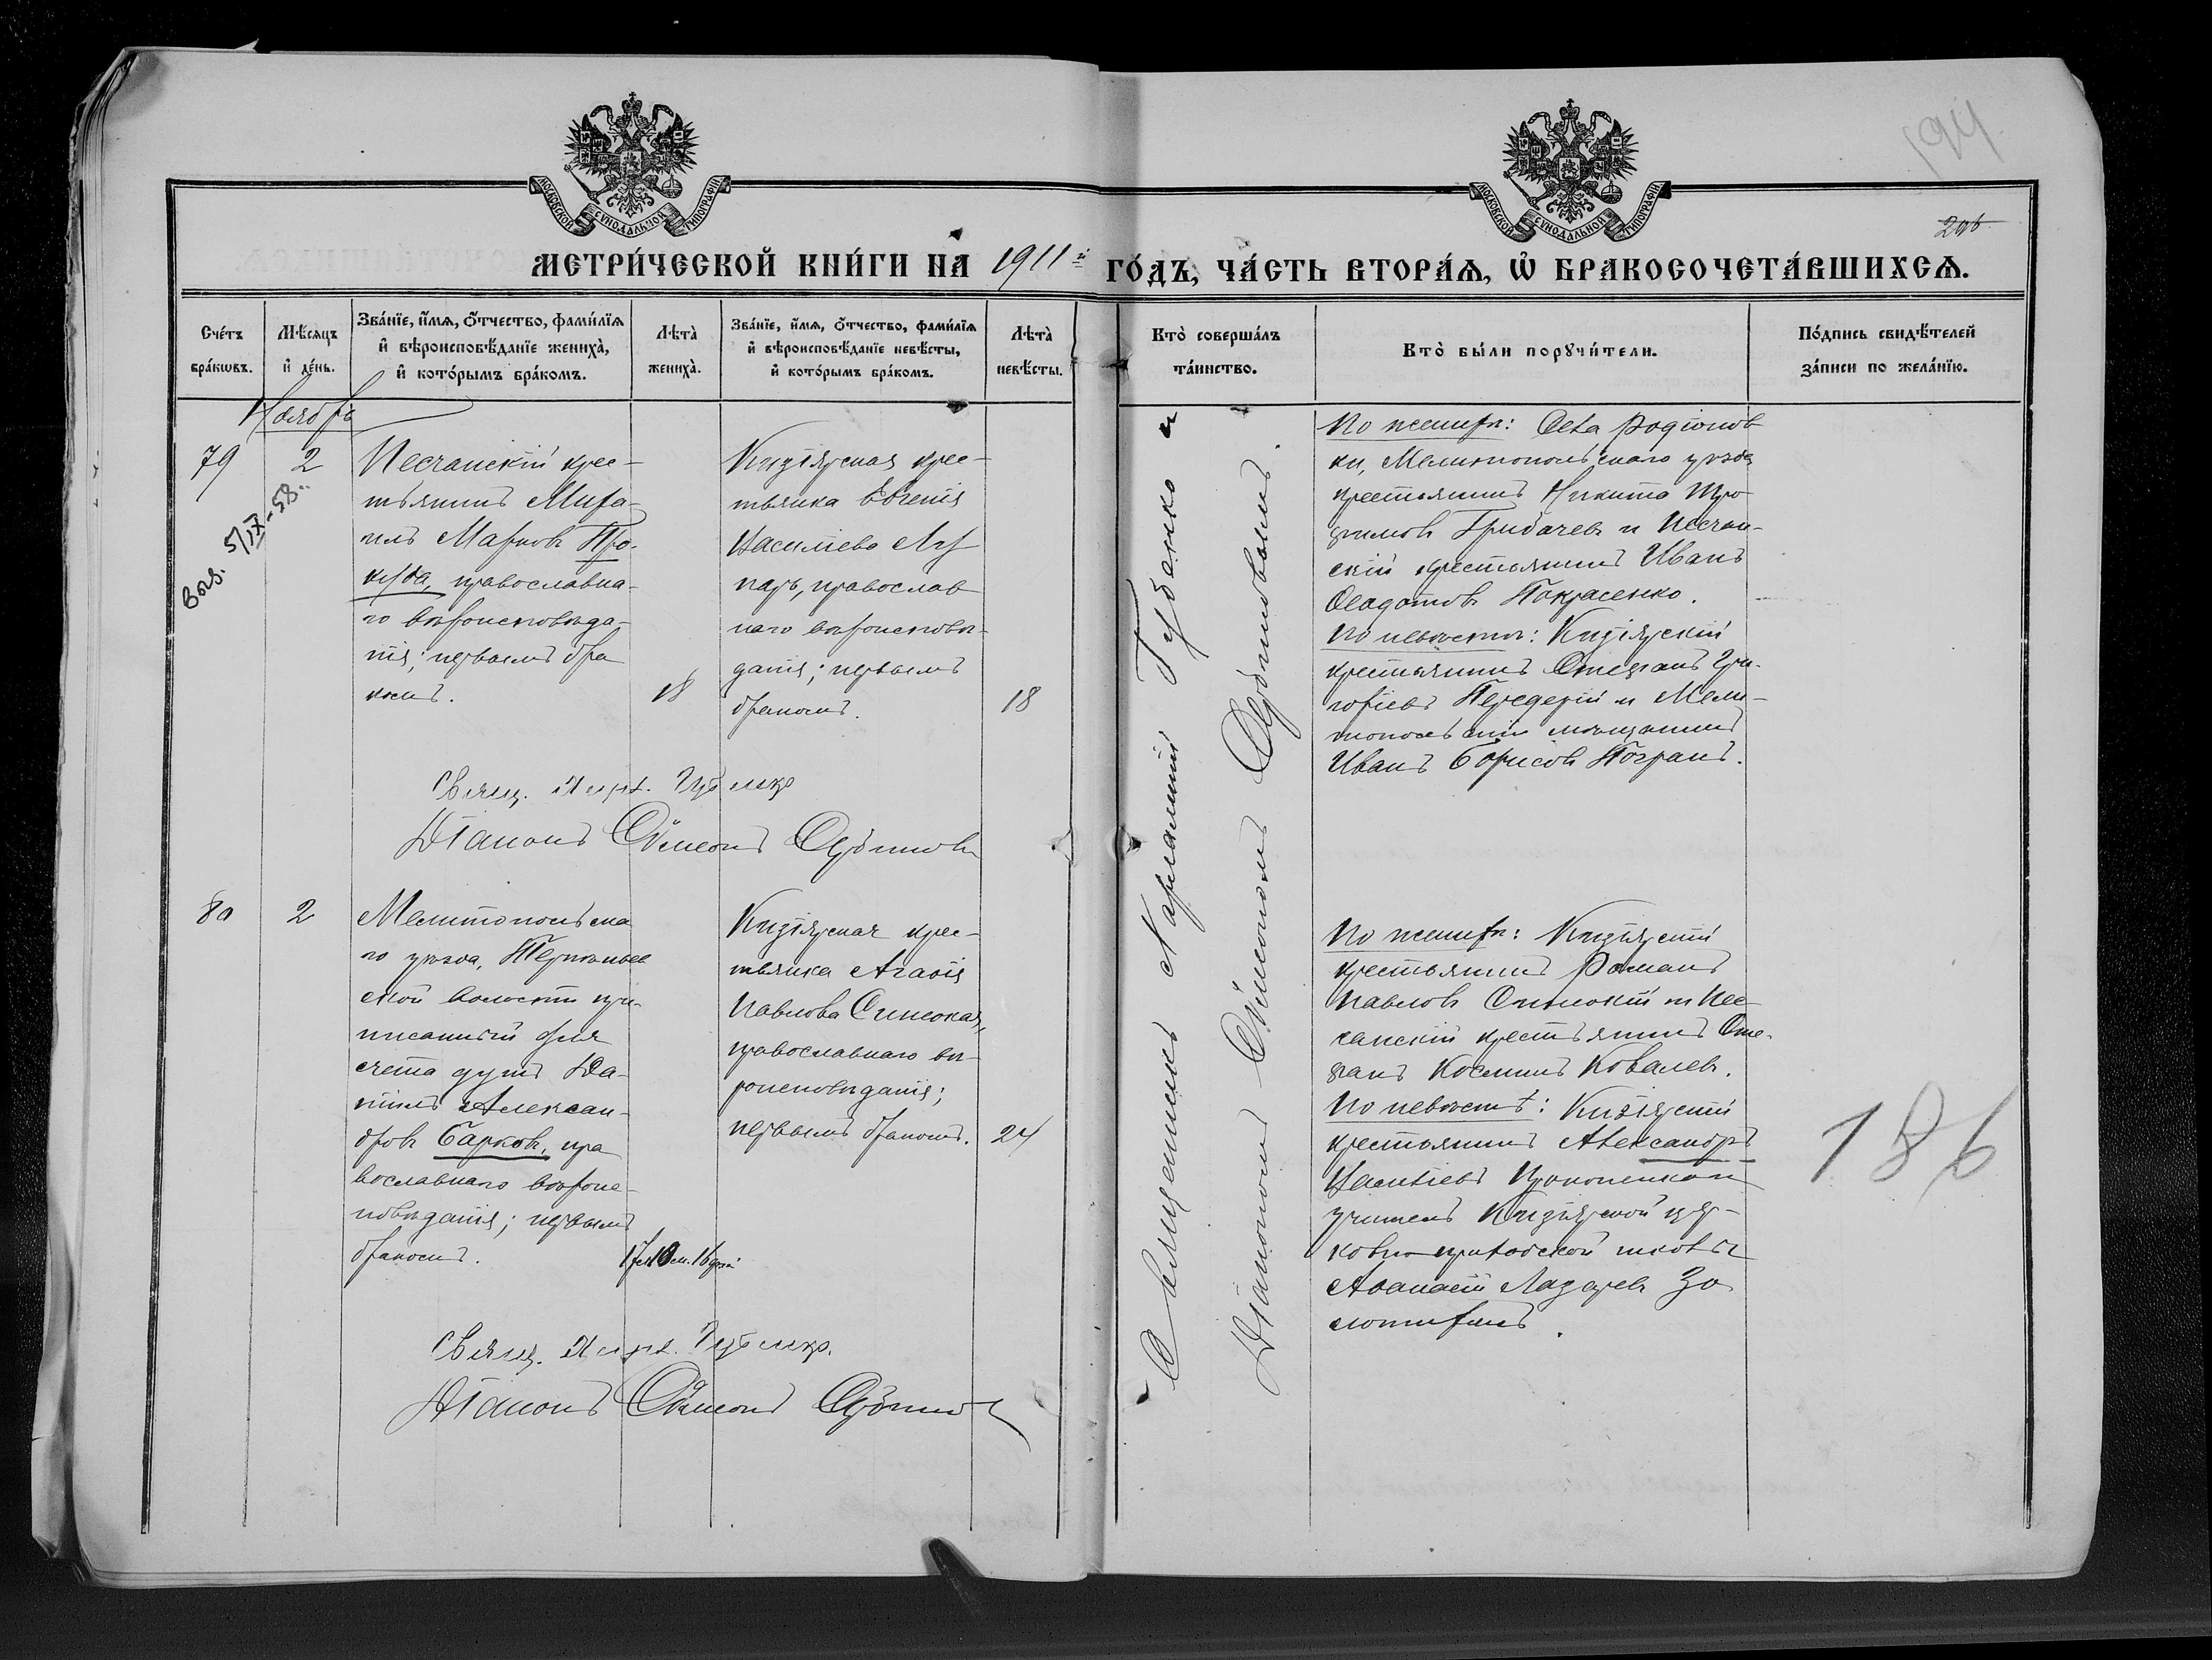 МОСКОВСКОЙ СѴНОДАЛЬНОЙ ТИПОГРАФІИ
МОСКОВСКОЙ СѴНОДАЛЬНОЙ ТИПОГРАФІИ
194
206
МЕТРИ́ЧЕСКОЙ КНИ́ГИ НА 1911й ГО́ДЪ, ЧА́СТЬ ВТОРА́Ѧ, Ѡ БРАКОСОЧЕТА́ВШИХСѦ.
Сче́тъ бра́кѡвъ.
Мѣ́сѧцъ и де́нь.
Зва́нїе, и́мѧ, о́тчество, фами́лїѧ
и вѣроисповѣ́данїе женихà,
и кото́рымъ бра́комъ.
Лѣтà женихà.
Зва́нїе, и́мѧ, о́тчество, фами́лїѧ
и вѣроисповѣ́данїе невѣ́сты,
и кото́рымъ бра́комъ.
Лѣтà невѣ́сты.
Кто̀ соверша́лъ та́инство.
Кто̀ бы́ли порꙋчи́тели.
По́дпись свидѣ́телей
за́писи по жела́нїю.
Ноябрь
79
2
Выд. 5/IX-58.
Песчанскій крес-
тьянинъ Миха-
илъ Марковъ Про-
куда, православна-
го вѣроисповѣда-
нія; первымъ бра
комъ.
18
Кизіярская крес-
тьянка Евгенія
Василіева
православ
наго вѣроисповѣ-
данія; первымъ
бракомъ.
18
Священникъ Харлампій Губенко и
Діаконъ Сѵмеонъ
По женихѣ: Села Родіонов
ки, Мелитопольскаго уѣзда
крестьянинъ Никита Тро
фимовъ Грибачевъ и Песчан-
скій крестьянинъ Иванъ
Ѳеодотовъ Покрасенко.
По невѣстѣ: Кизіярскій
крестьянинъ Стефанъ Гри-
горіевъ Передерій и Мели-
топольскій мѣщанинъ
Иванъ Борисовъ
Свящ. Харл. Губенко
Діаконъ Сѵмеонъ
80
2
Мелитопольска
го уѣзда, Терпѣньев
ской волости при-
писанный для
счета душъ Да-
ніилъ Алексан-
дровъ Барковъ, пра
вославнаго вѣроис-
повѣданія; первымъ
бракомъ.
17 л. 10 м. 16 дней
Кизіярская крес-
тьянка Агаѳія
Павлова Симокая,
православнаго вѣ-
роисповѣданія;
первымъ бракомъ.
24
По женихѣ: Кизіярскій
крестьянинъ Романъ
Павловъ и Пес
чанскій крестьянинъ Сте-
фанъ Косминъ Ковалевъ.
По невѣстѣ: Кизіярскій
крестьянинъ Александръ
Василіевъ
учитель Кизіярской цер-
ковно-приходской школы
Аѳанасій Лазаревъ Зо
лотухинъ.
186
Свящ. Харл. Губенко.
Діаконъ Сѵмеонъ